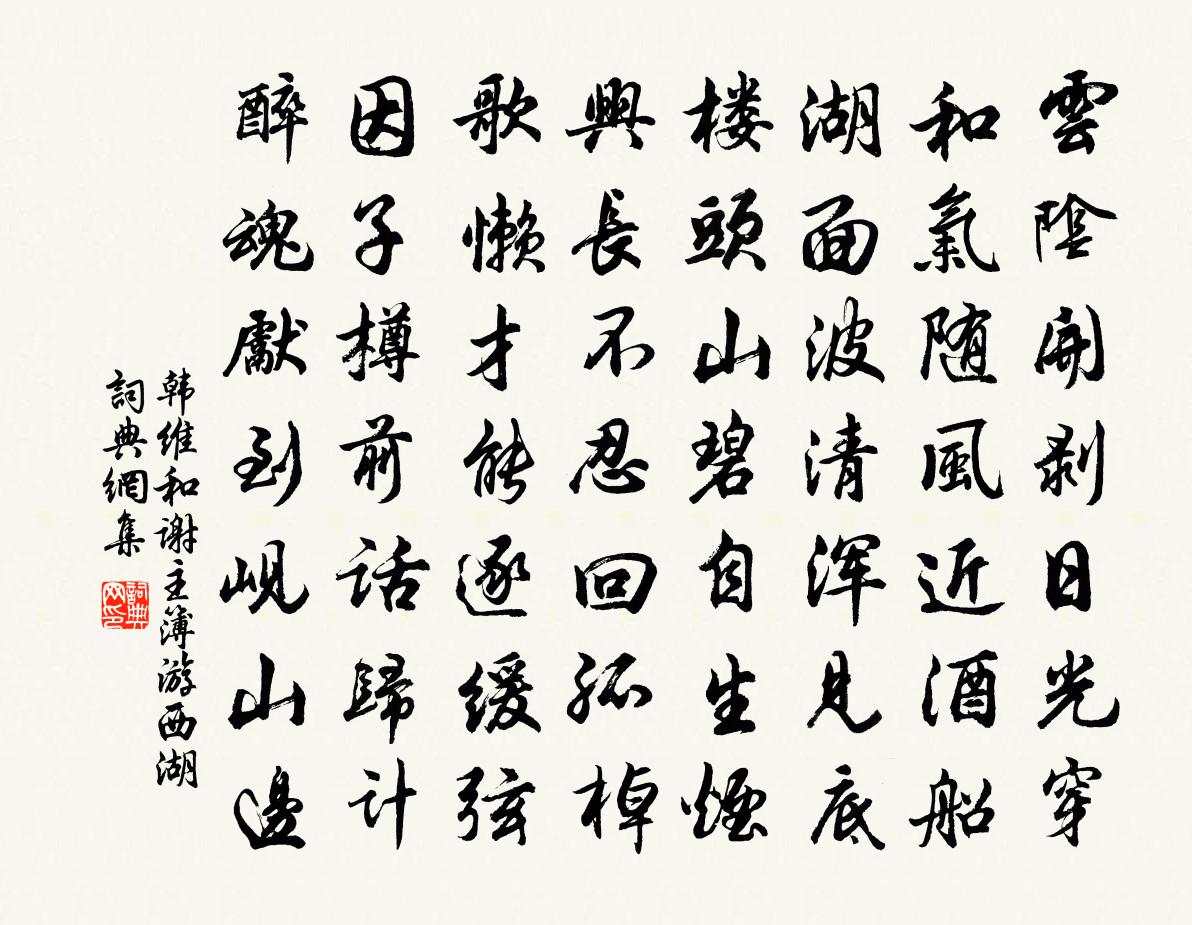 雲陰開剥日光穿
和氣随風近酒船
湖面波清渾見底
楼頭山碧自生煙
興長不忍回孤棹
歌懶才能逐缓弦
因子樽前話歸计
醉魂獻到峴山邊
韩維和谢主簿游西湖
詞典網集
詞典网印